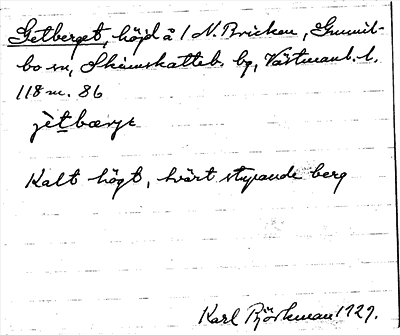 Getberget, höjd å 1 N. Bricken, Gunnil-
bo sn, Skinnskatteb. bg, Västmanl. l.
118 m. 86
jètbærjt
Kalt högt, tvärt stupande berg
Karl Björkman 1929.